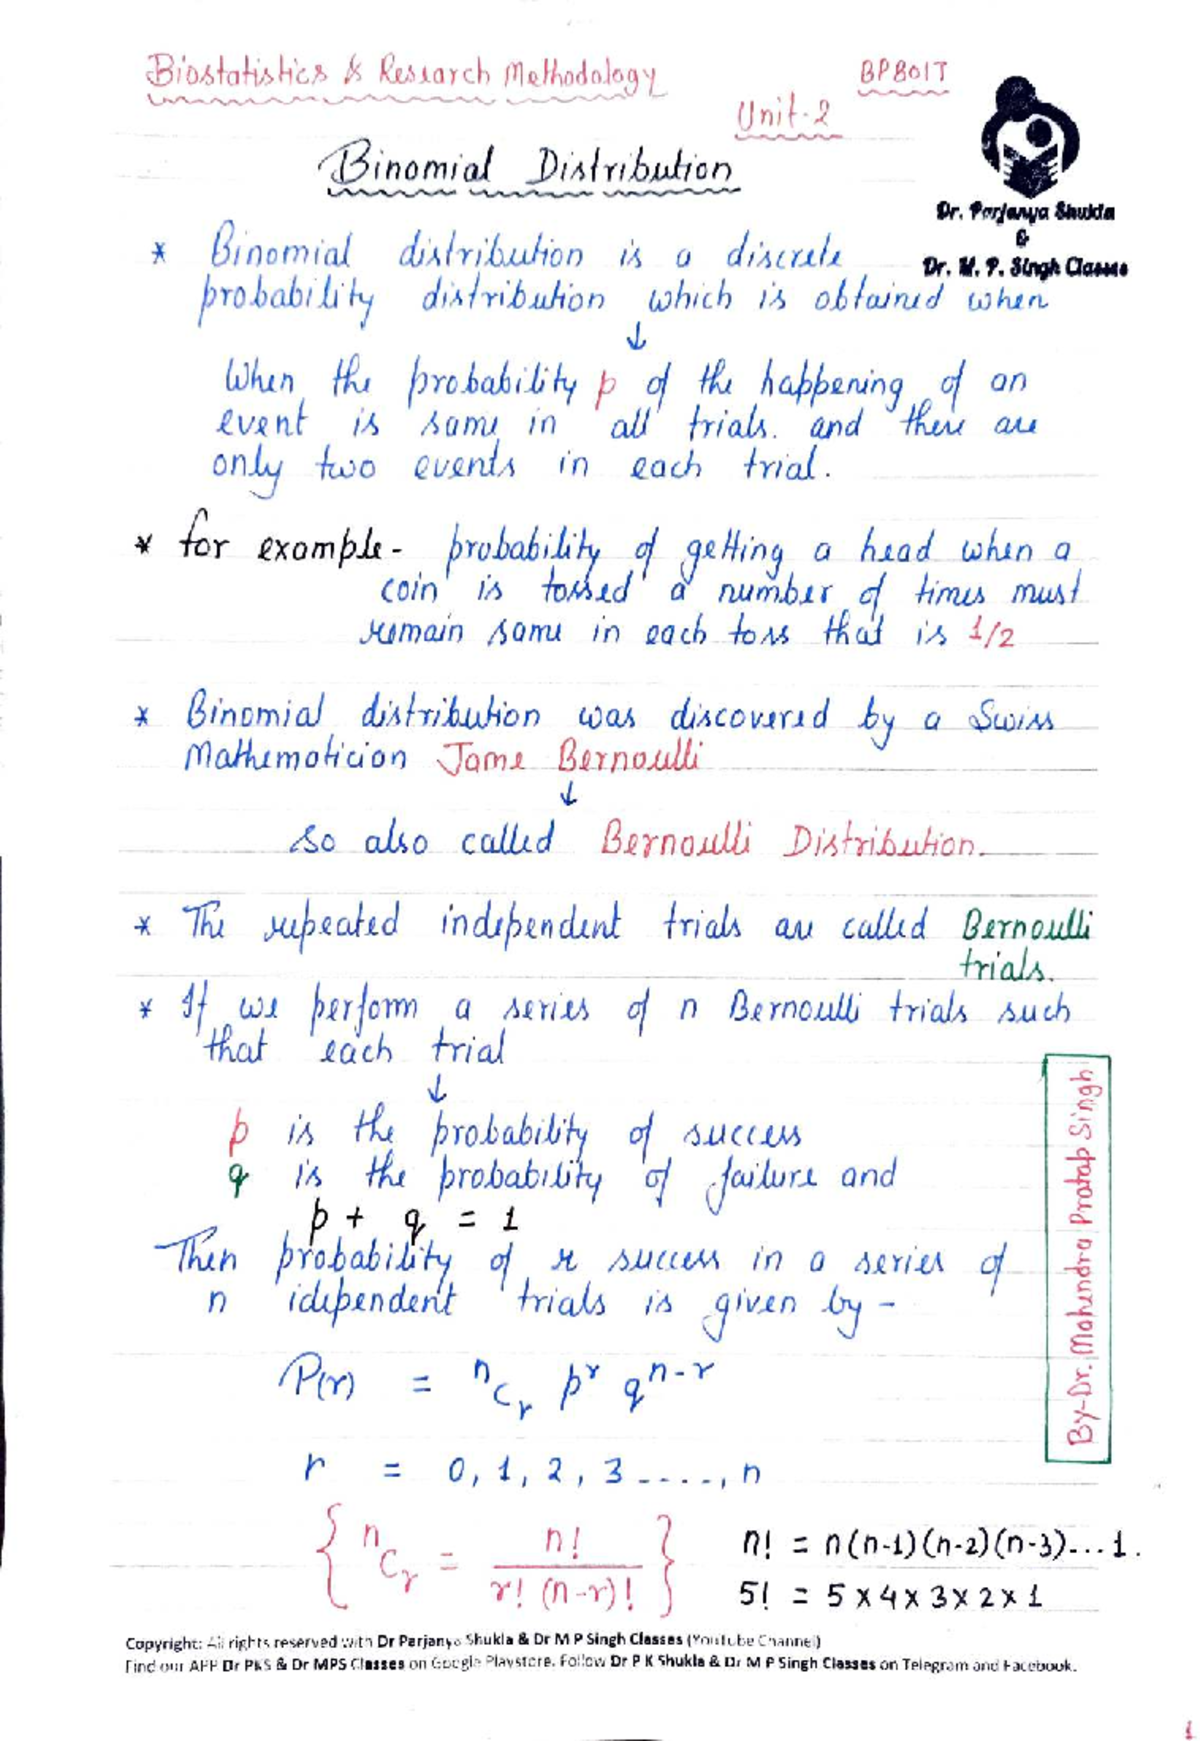 Biostatistics & Research Methodology
BP801T
Unit-2
Binomial Distribution
Dr. Parjanya Shukla
&
Dr. M. P. Singh Classes
* Binomial distribution is a discrete
probability distribution which is obtained when
↓
When the probability p of the happening of an
event is same in all trials. and there are
only two events in each trial.
* for example - probability of getting a head when a
coin is tossed a number of times must
remain same in each toss that is 1/2
* Binomial distribution was discovered by a Swiss
Mathematician Jame Bernoulli
↓
So also called Bernoulli Distribution.
* The repeated independent trials are called Bernoulli
trials.
* If we perform a series of n Bernoulli trials such
that each trial
↓
p is the probability of success
q is the probability of failure and
p + q = 1
Then probability of r success in a series of
n idependent trials is given by -
P(r) = ⁿCᵣ pʳ qⁿ⁻ʳ
r = 0, 1, 2, 3 ...., n
{ ⁿCᵣ = n! / r! (n-r)! }
n! = n(n-1)(n-2)(n-3)...1.
5! = 5 x 4 x 3 x 2 x 1
By-Dr. Mahendra Pratap Singh
Copyright: All rights reserved with Dr Parjanya Shukla & Dr M P Singh Classes (YouTube Channel)
Find our APP Dr PKS & Dr MPS Classes on Google Playstore. Follow Dr P K Shukla & Dr M P Singh Classes on Telegram and Facebook.
1